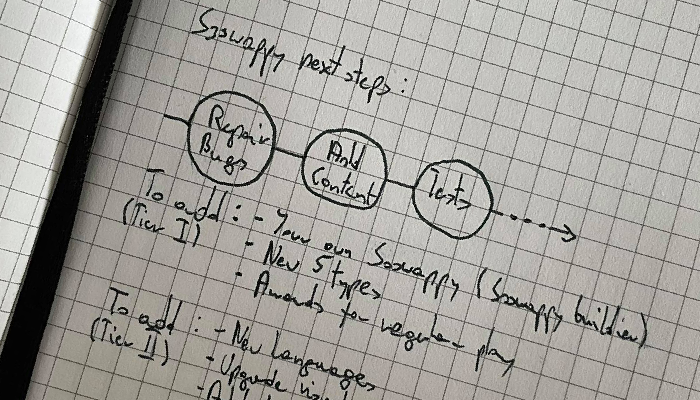 Soswappy next steps:
Repair
Bugs
Add
Content
Tests
To add : - Your own Soswappy (Soswappy buildier)
(Tier I) - New 5 types
- Awards for regular play
To add : - New languages
(Tier II) - Upgrade